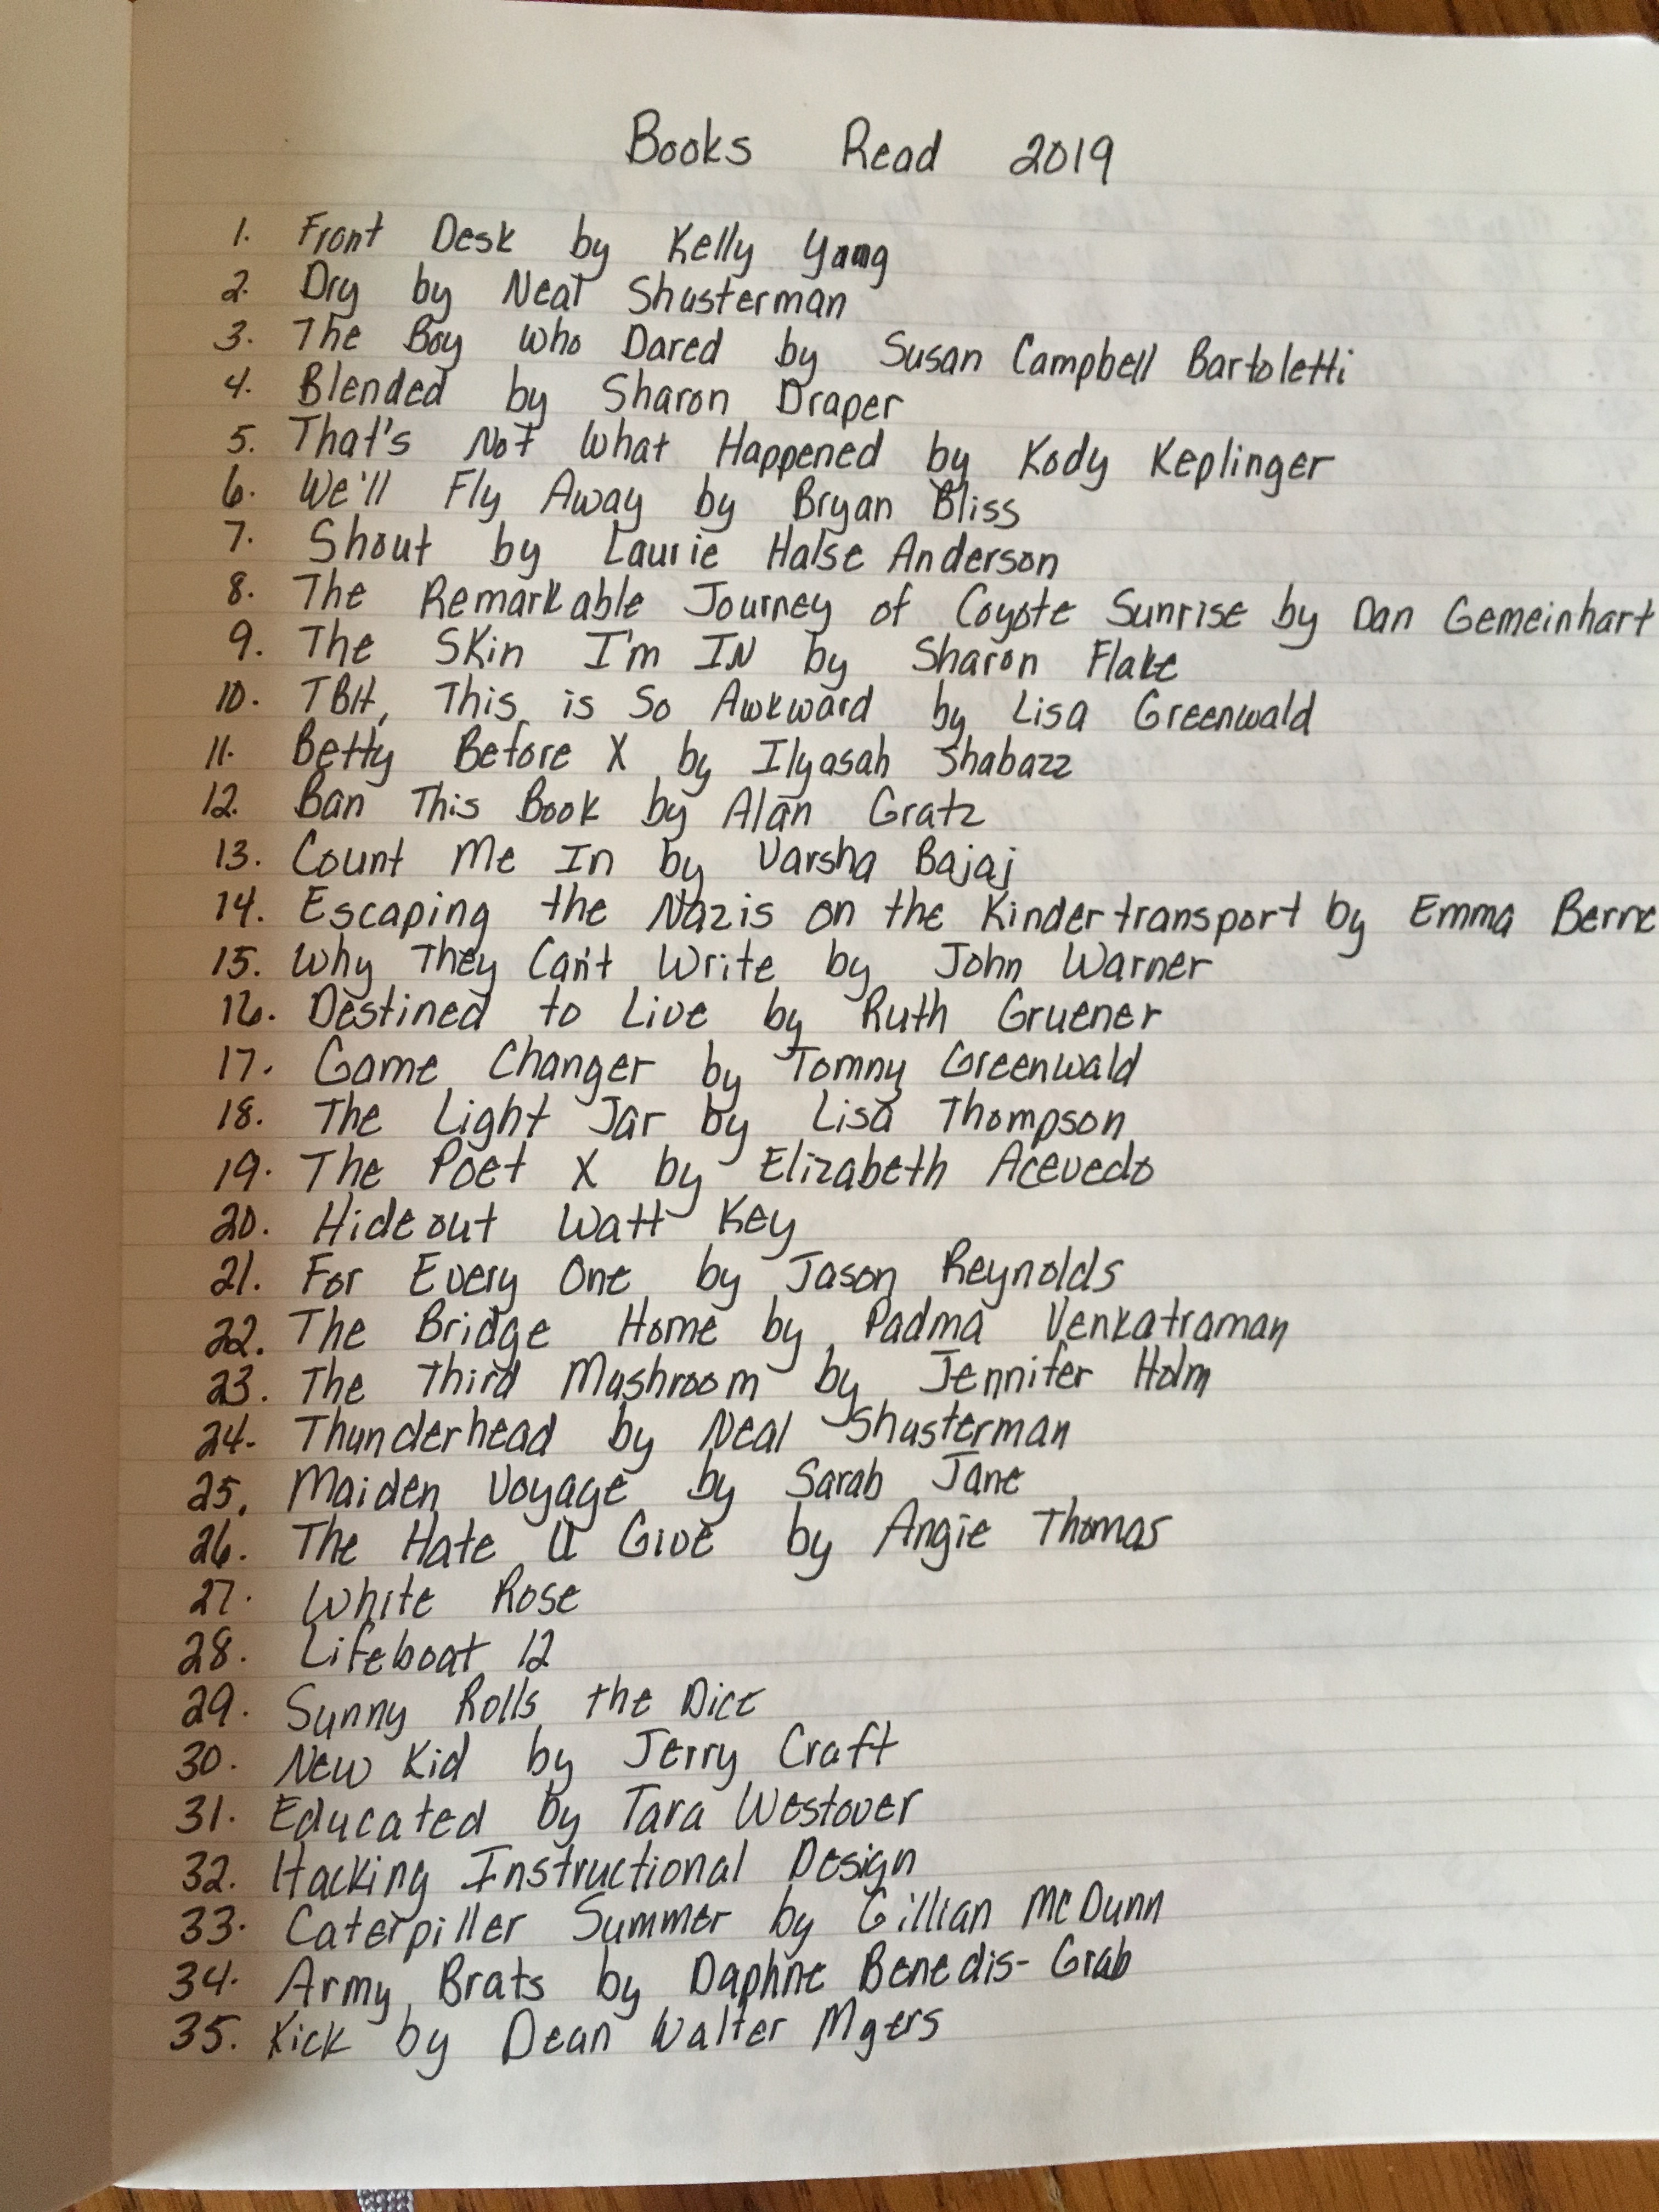 Books Read 2019
1. Front Desk by Kelly Yang
2. Dry by Neal Shusterman
3. The Boy Who Dared by Susan Campbell Bartoletti
4. Blended by Sharon Draper
5. That's Not What Happened by Kody Keplinger
6. We'll Fly Away by Bryan Bliss
7. Shout by Laurie Halse Anderson
8. The Remarkable Journey of Coyote Sunrise by Dan Gemeinhart
9. The Skin I'm IN by Sharon Flake
10. TBH, This is So Awkward by Lisa Greenwald
11. Betty Before X by Ilyasah Shabazz
12. Ban This Book by Alan Gratz
13. Count Me In by Varsha Bajaj
14. Escaping the Nazis on the Kindertransport by Emma Berne
15. Why They Can't Write by John Warner
16. Destined to Live by Ruth Gruener
17. Game Changer by Tommy Greenwald
18. The Light Jar by Lisa Thompson
19. The Poet X by Elizabeth Acevedo
20. Hideout Watt Key
21. For Every One by Jason Reynolds
22. The Bridge Home by Padma Venkatraman
23. The Third Mushroom by Jennifer Holm
24. Thunderhead by Neal Shusterman
25. Maiden Voyage by Sarah Jane
26. The Hate U Give by Angie Thomas
27. White Rose
28. Lifeboat 12
29. Sunny Rolls the Dice
30. New Kid by Jerry Craft
31. Educated by Tara Westover
32. Hacking Instructional Design
33. Caterpiller Summer by Gillian McDunn
34. Army Brats by Daphne Benedis-Grab
35. Kick by Dean Walter Myers